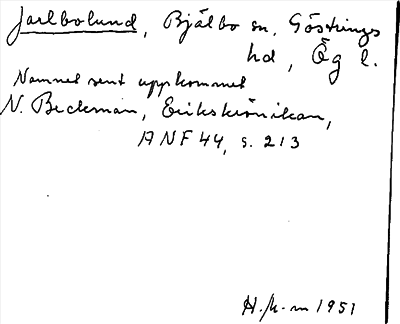 Jarlbolund, Bjälbo sn, Göstrings
hd, Ög l.
Namnet sent uppkommet
N. Beckman, Erikskrönikan,
ANF 44, s. 213
H. /k-m 1951